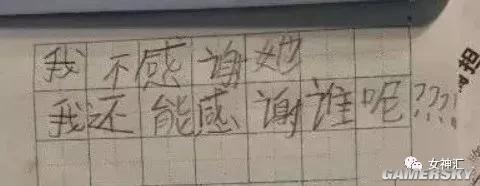 我不感谢她
我还能感谢谁呢????
女神汇
GAMERSKY